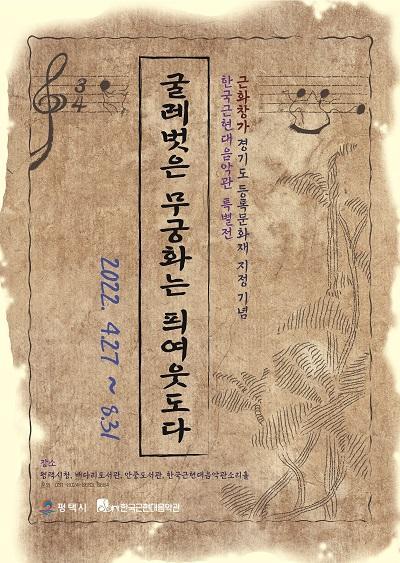 근화창가 경기도 등록문화재 지정 기념
한국근현대음악관 특별전
굴레벗은 무궁화는 픠여웃도다
2022. 4.27 ~ 8.31
3
4
장소
평택시청, 배다리도서관, 안중도서관, 한국근현대음악관소리울
평택시
한국근현대음악관